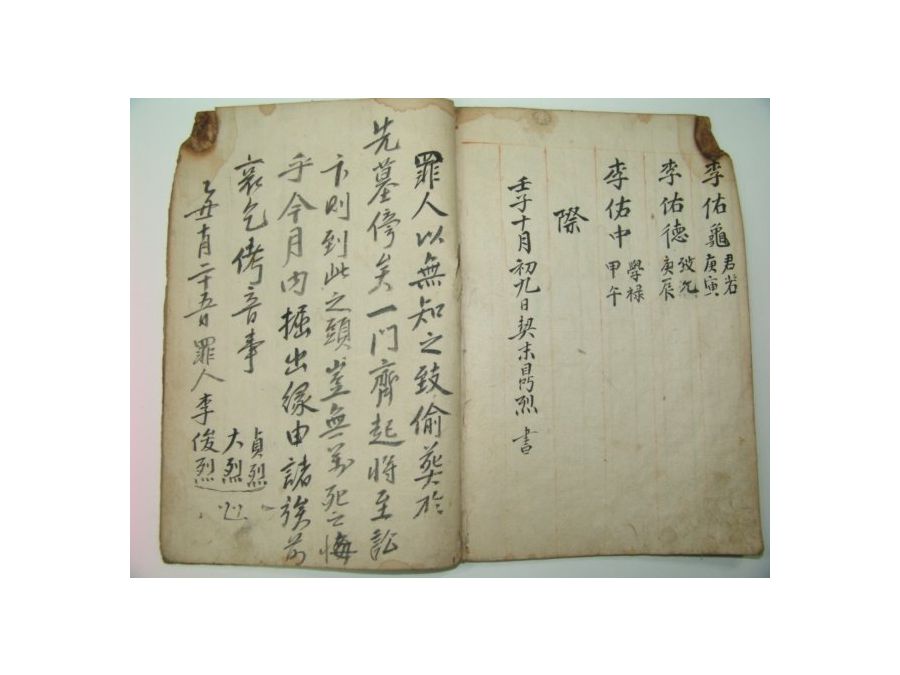 李佑龜 君若 庚寅
李佑德 致九 庚辰
李佑中 學祿 甲午
際
壬子十月初九日契末昌烈 書
罪人以無知之致偷葬於
先墓傍矣一門齊起將至訟
卞則到此之頭豈無万死之悔
乎今月內掘出緣由諸族前
哀乞侤音事
乙丑十月二十五日罪人李俊烈
大烈
貞烈